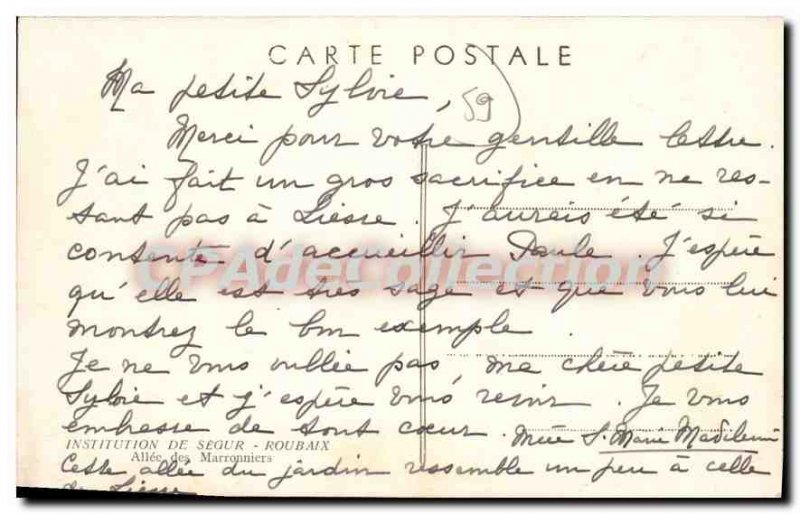 CARTE POSTALE
59
Ma petite Sylvie,
Merci pour votre gentille lettre.
J'ai fait un gros sacrifice en ne res-
tant pas à Liesse. J'aurais été si
contente d'accueillir Paule. J'espère
CPAdeCollection
qu'elle est très sage et que vous lui
montrez le bon exemple.
Je ne vous oublie pas, ma chère petite
Sylvie et j'espère vous revoir. Je vous
embrasse de tout cœur. Mère S. Marie Madeleine
INSTITUTION DE SÉGUR - ROUBAIX
Allée des Marronniers
Cette allée du jardin ressemble un peu à celle
de Liesse